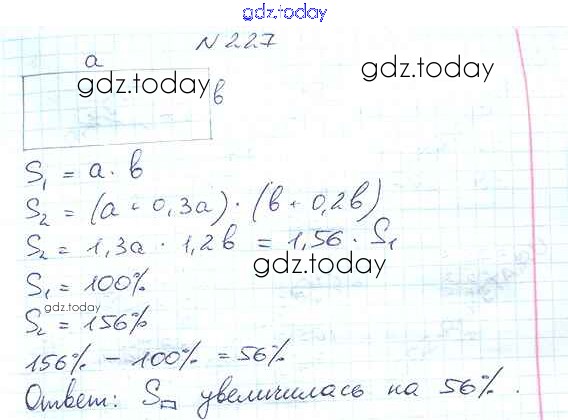 gdz.today
N 227
a
gdz.today
b
gdz.today
S₁ = a · b
S₂ = (a + 0,3a) · (b + 0,2b)
S₂ = 1,3a · 1,2b = 1,56 · S₁
gdz.today
S₁ = 100%
gdz.today
S₂ = 156%
156% - 100% = 56%
Ответ: S▭ увеличилась на 56%.